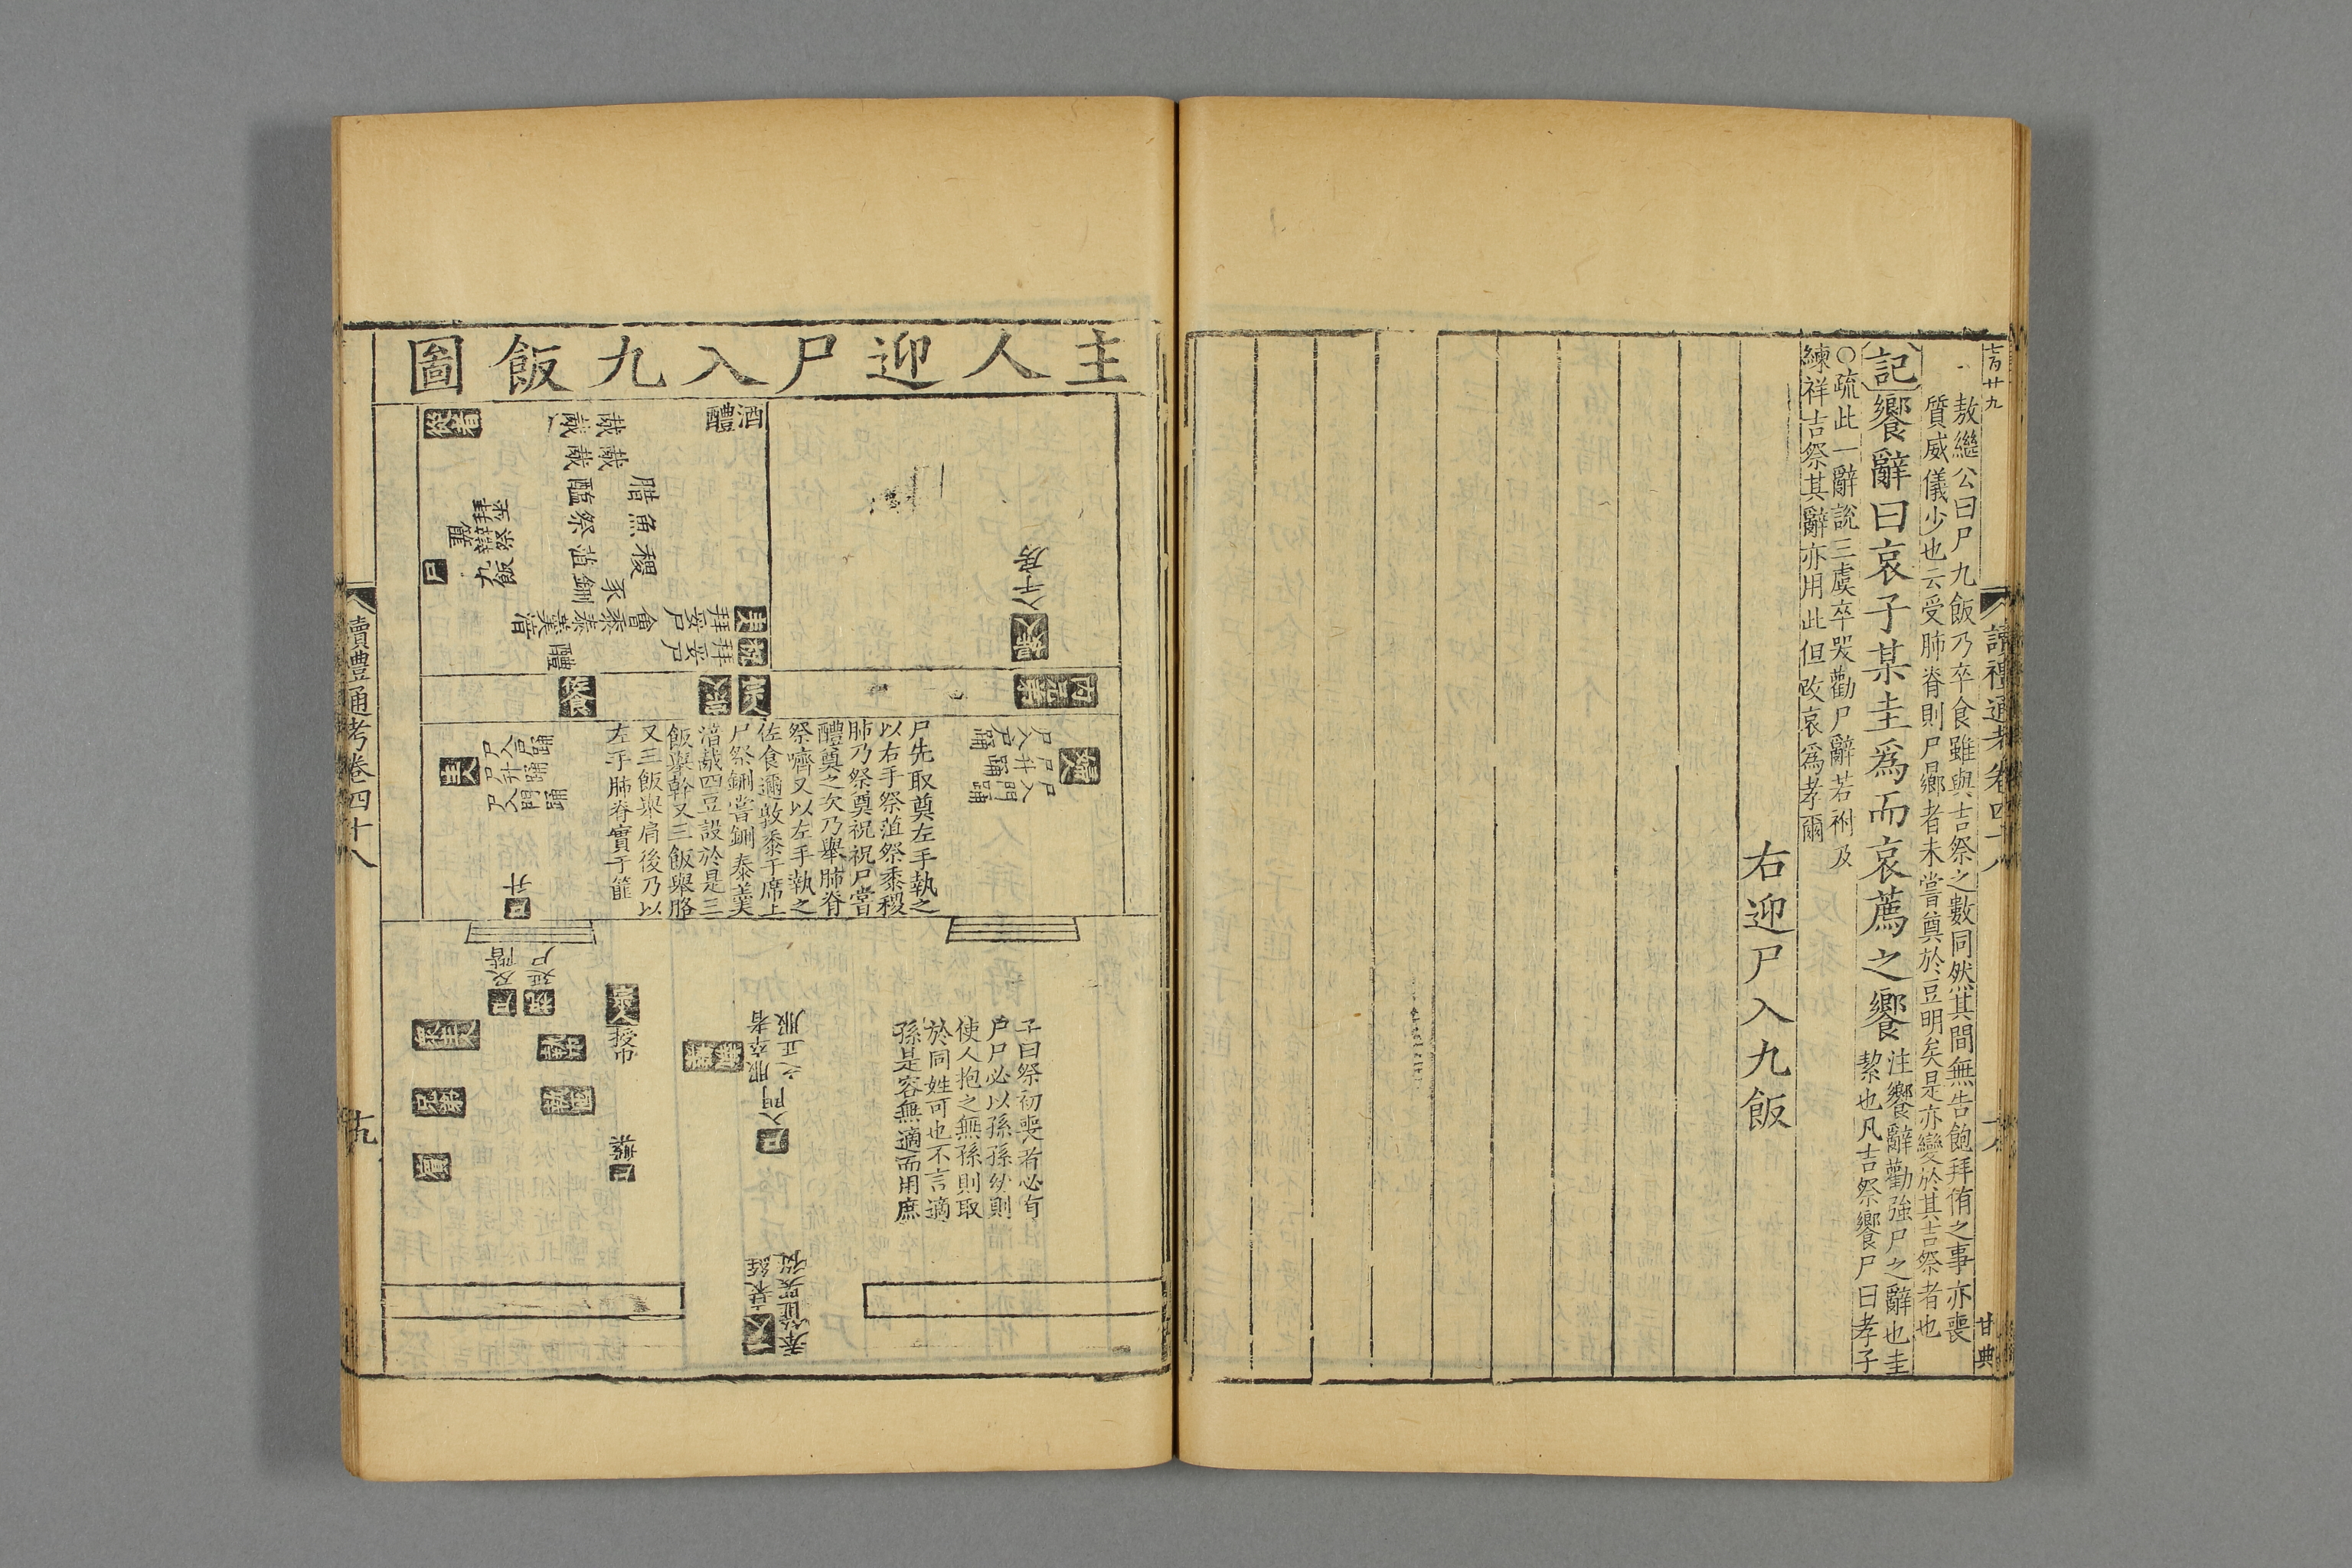 敖繼公曰尸九飯乃卒食雖與吉祭之數同然其間無告飽拜侑之事亦喪
質威儀少也云受肺脊則尸鄉者未嘗奠於豆明矣是亦變於其吉祭者也
記饗辭曰哀子某圭爲而哀薦之饗
注饗辭勸強尸之辭也圭
絜也凡吉祭饗尸曰孝子
○疏此一辭說三虞卒哭勸尸辭若祔及
練祥吉祭其辭亦用此但改哀爲孝爾
右迎尸入九飯
讀禮通考卷四十八
甘典
主人迎尸入九飯圖
酒
醴
腊魚稷
豕
醢祭菹鉶
九飯
尸
入于房
尸先取奠左手執之
以右手祭菹祭黍稷
肺乃祭奠祝祝尸嘗
醴奠之次乃舉肺脊
祭嚌又以左手執之
佐食邇敦黍于席上
尸祭鉶嘗鉶泰羹
湆胾四豆設於是三
飯舉幹又三飯舉胳
又三飯舉肩後乃以
左手肺脊實于篚
尸入門踊
尸升踊
尸入戶踊
升
尸及階
祝延尸
授巾
尸入門
子曰祭初喪者必有
尸尸必以孫孫幼則
使人抱之無孫則取
於同姓可也不言適
孫是容無適而用庶
讀禮通考卷四十八
十九